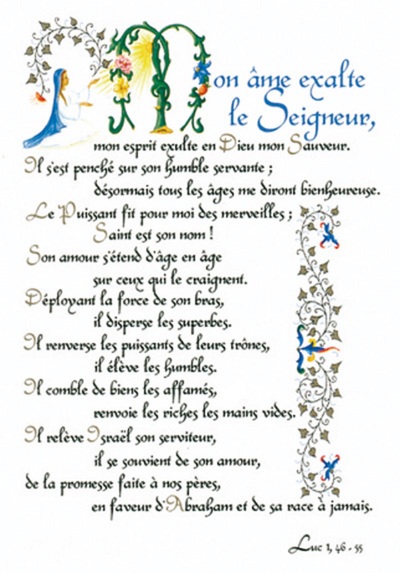 Mon âme exalte
le Seigneur,
mon esprit exulte en Dieu mon Sauveur.
Il s'est penché sur son humble servante ;
désormais tous les âges me diront bienheureuse.
Le Puissant fit pour moi des merveilles ;
Saint est son nom !
Son amour s'étend d'âge en âge
sur ceux qui le craignent.
Déployant la force de son bras,
il disperse les superbes.
Il renverse les puissants de leurs trônes,
il élève les humbles.
Il comble de biens les affamés,
renvoie les riches les mains vides.
Il relève Israël son serviteur,
il se souvient de son amour,
de la promesse faite à nos pères,
en faveur d'Abraham et de sa race à jamais.
Luc 1, 46 - 55